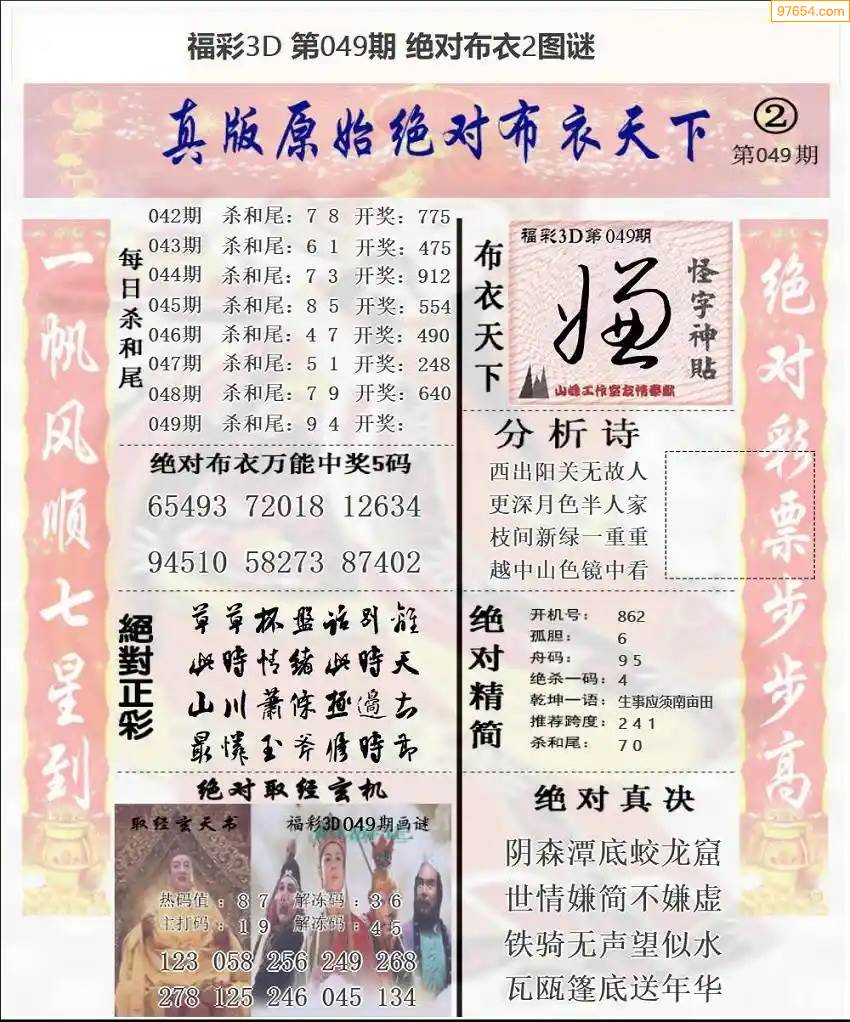 97654.com
福彩3D 第049期 绝对布衣2图谜
真版原始绝对布衣天下
②
第049期
一帆风顺七星到
每日杀和尾
042期 杀和尾：7 8 开奖：775
043期 杀和尾：6 1 开奖：475
044期 杀和尾：7 3 开奖：912
045期 杀和尾：8 5 开奖：554
046期 杀和尾：4 7 开奖：490
047期 杀和尾：5 1 开奖：248
048期 杀和尾：7 9 开奖：640
049期 杀和尾：9 4 开奖：
绝对布衣万能中奖5码
65493 72018 12634
94510 58273 87402
絕對正彩
草草杯盤話别離
此時情緒此時天
山川蕭條極邊去
最憐玉斧修時節
绝对取经玄机
取经玄天书
福彩3D049期画谜
热码值：8 7 解冻码：3 6
主打码：1 9 解冻码：4 5
123 058 256 249 268
278 125 246 045 134
布衣天下
福彩3D第049期
嫌
怪字神貼
山峰工作室友情奉献
分析诗
西出阳关无故人
更深月色半人家
枝间新绿一重重
越中山色镜中看
绝对精简
开机号： 862
孤胆： 6
舟码： 9 5
绝杀一码：4
乾坤一语：生事应须南亩田
推荐跨度：2 4 1
杀和尾： 7 0
绝对真决
阴森潭底蛟龙窟
世情嫌简不嫌虚
铁骑无声望似水
瓦瓯篷底送年华
绝对彩票步步高